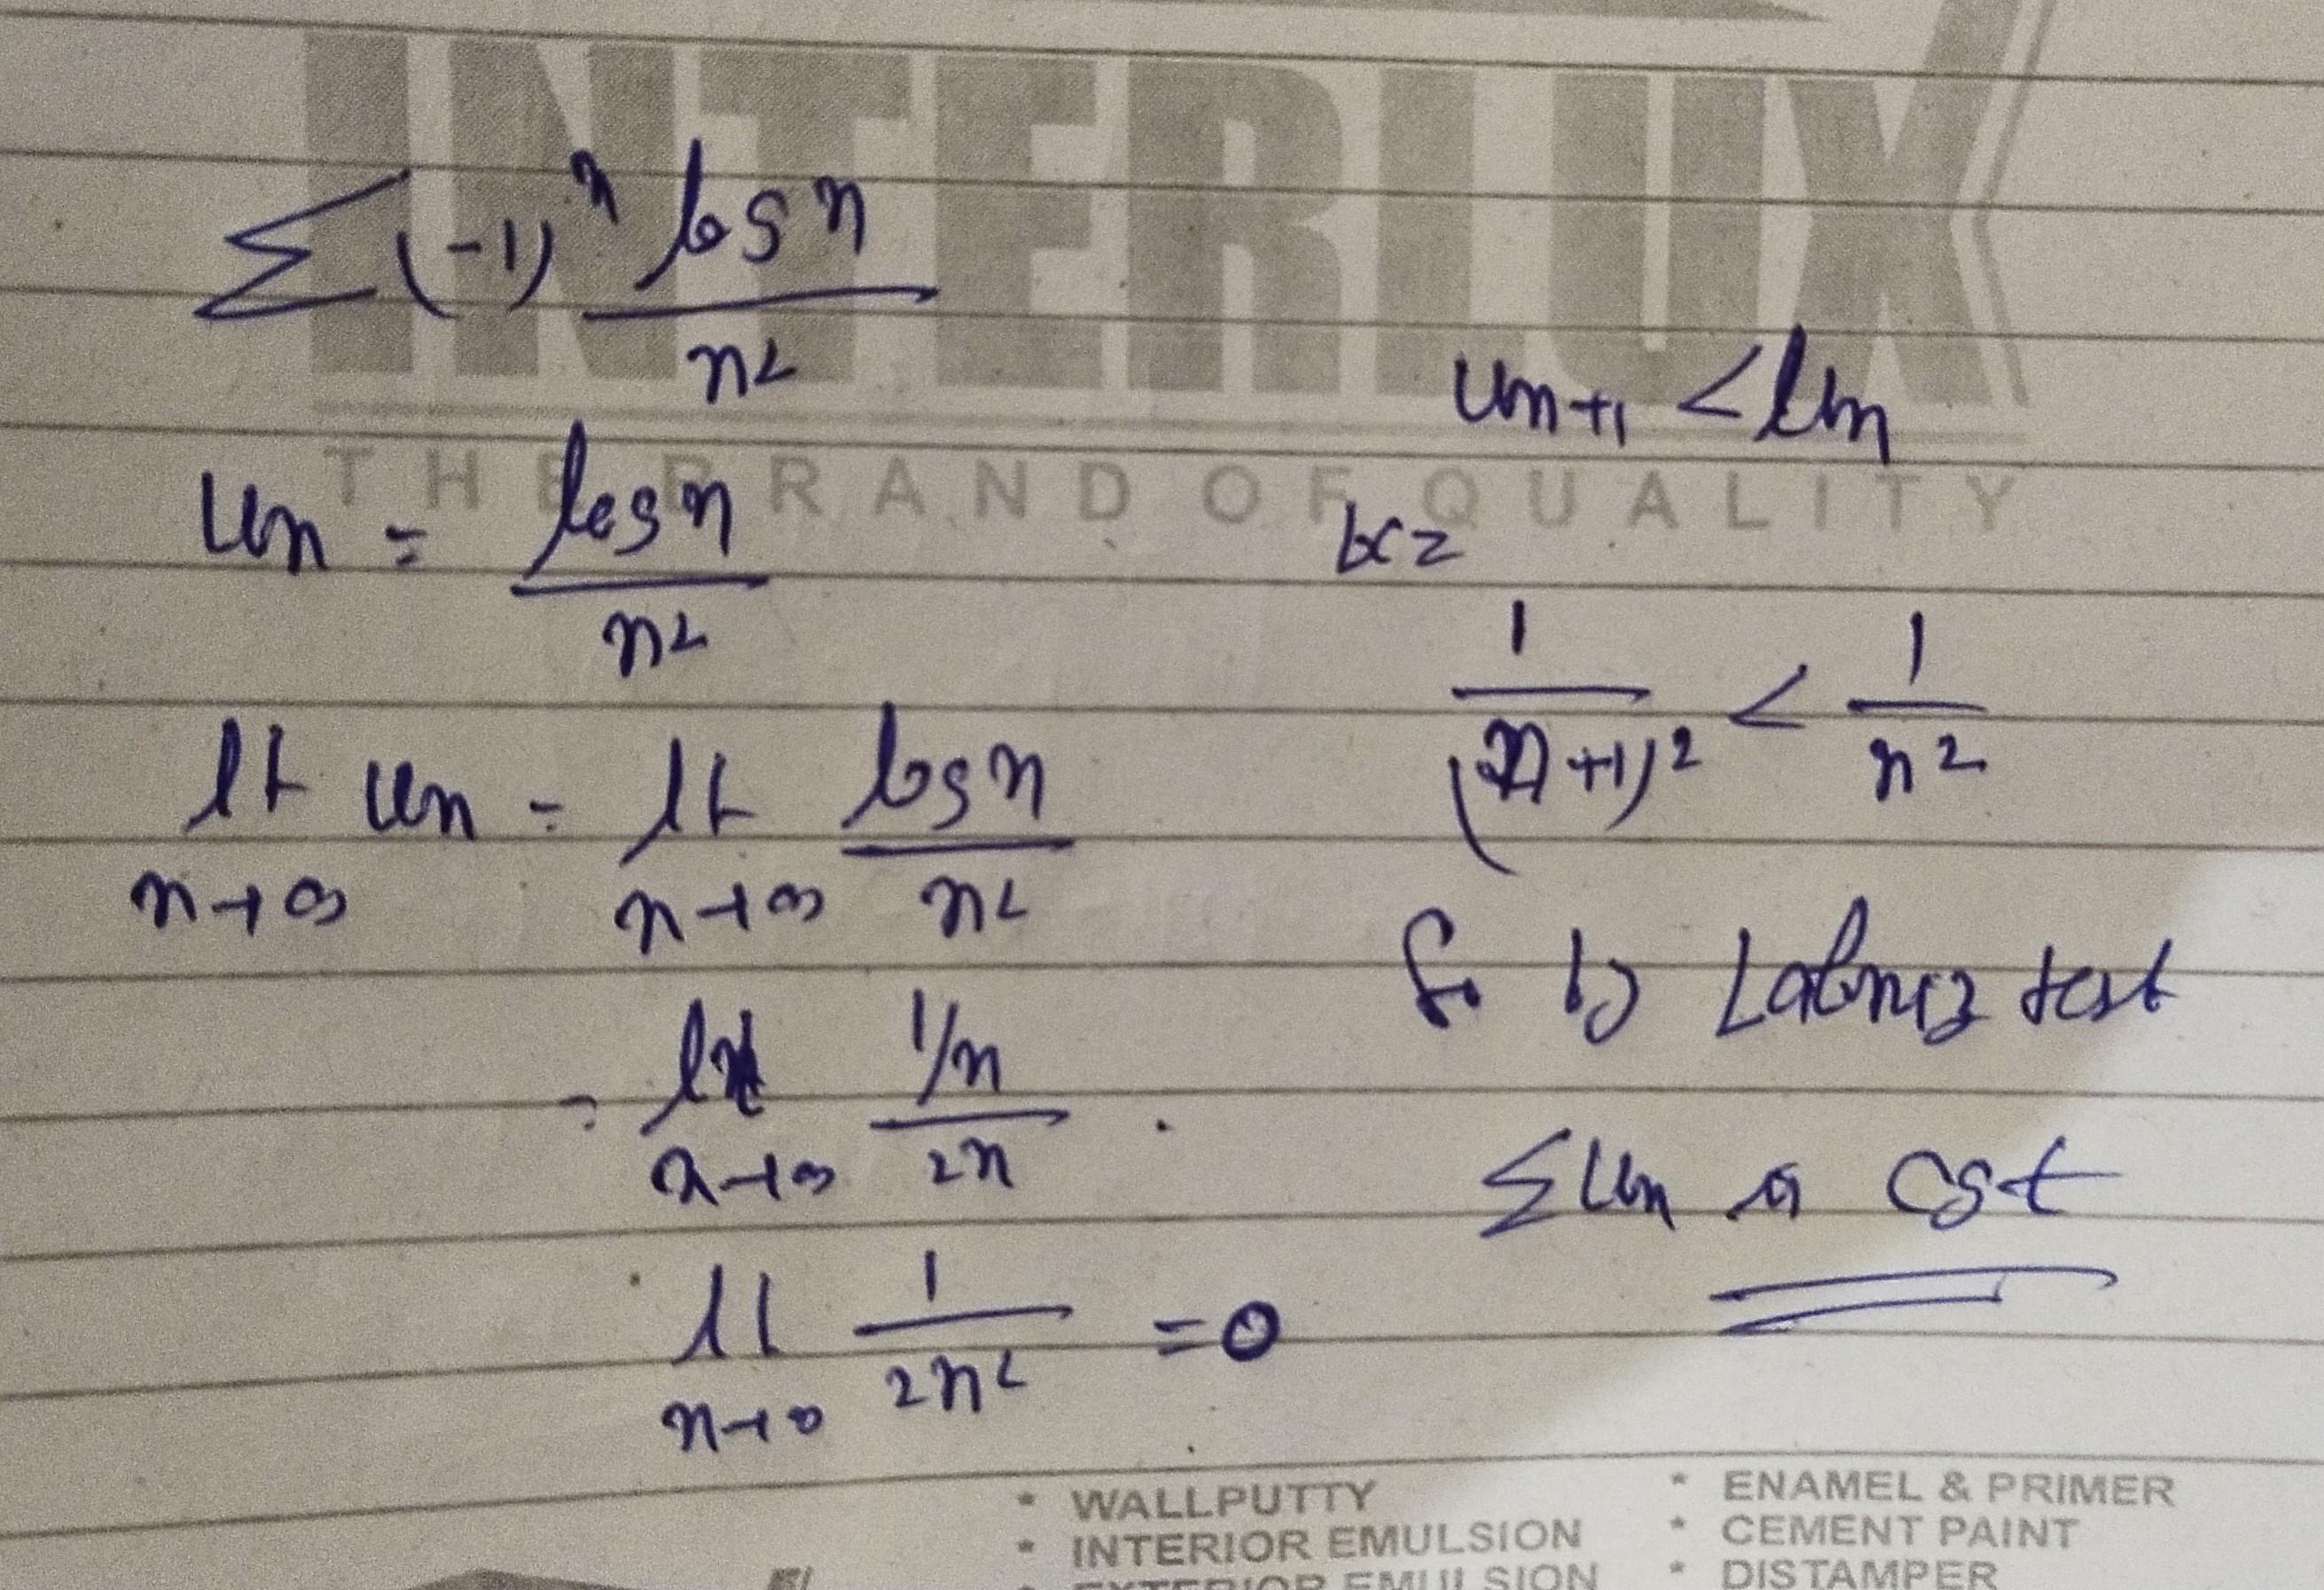 INTERLUX
THE BRAND OF QUALITY
Σ(-1)ⁿ log n / n²
un = log n / n²
lt n→∞ un = lt n→∞ log n / n²
= lt n→∞ (1/n) / 2n
lt n→∞ 1 / 2n² = 0
un+1 < un
bcz
1 / (n+1)² < 1 / n²
So by Labniz test
Σun is cgt
* WALLPUTTY
* INTERIOR EMULSION
* EXTERIOR EMULSION
* ENAMEL & PRIMER
* CEMENT PAINT
* DISTAMPER